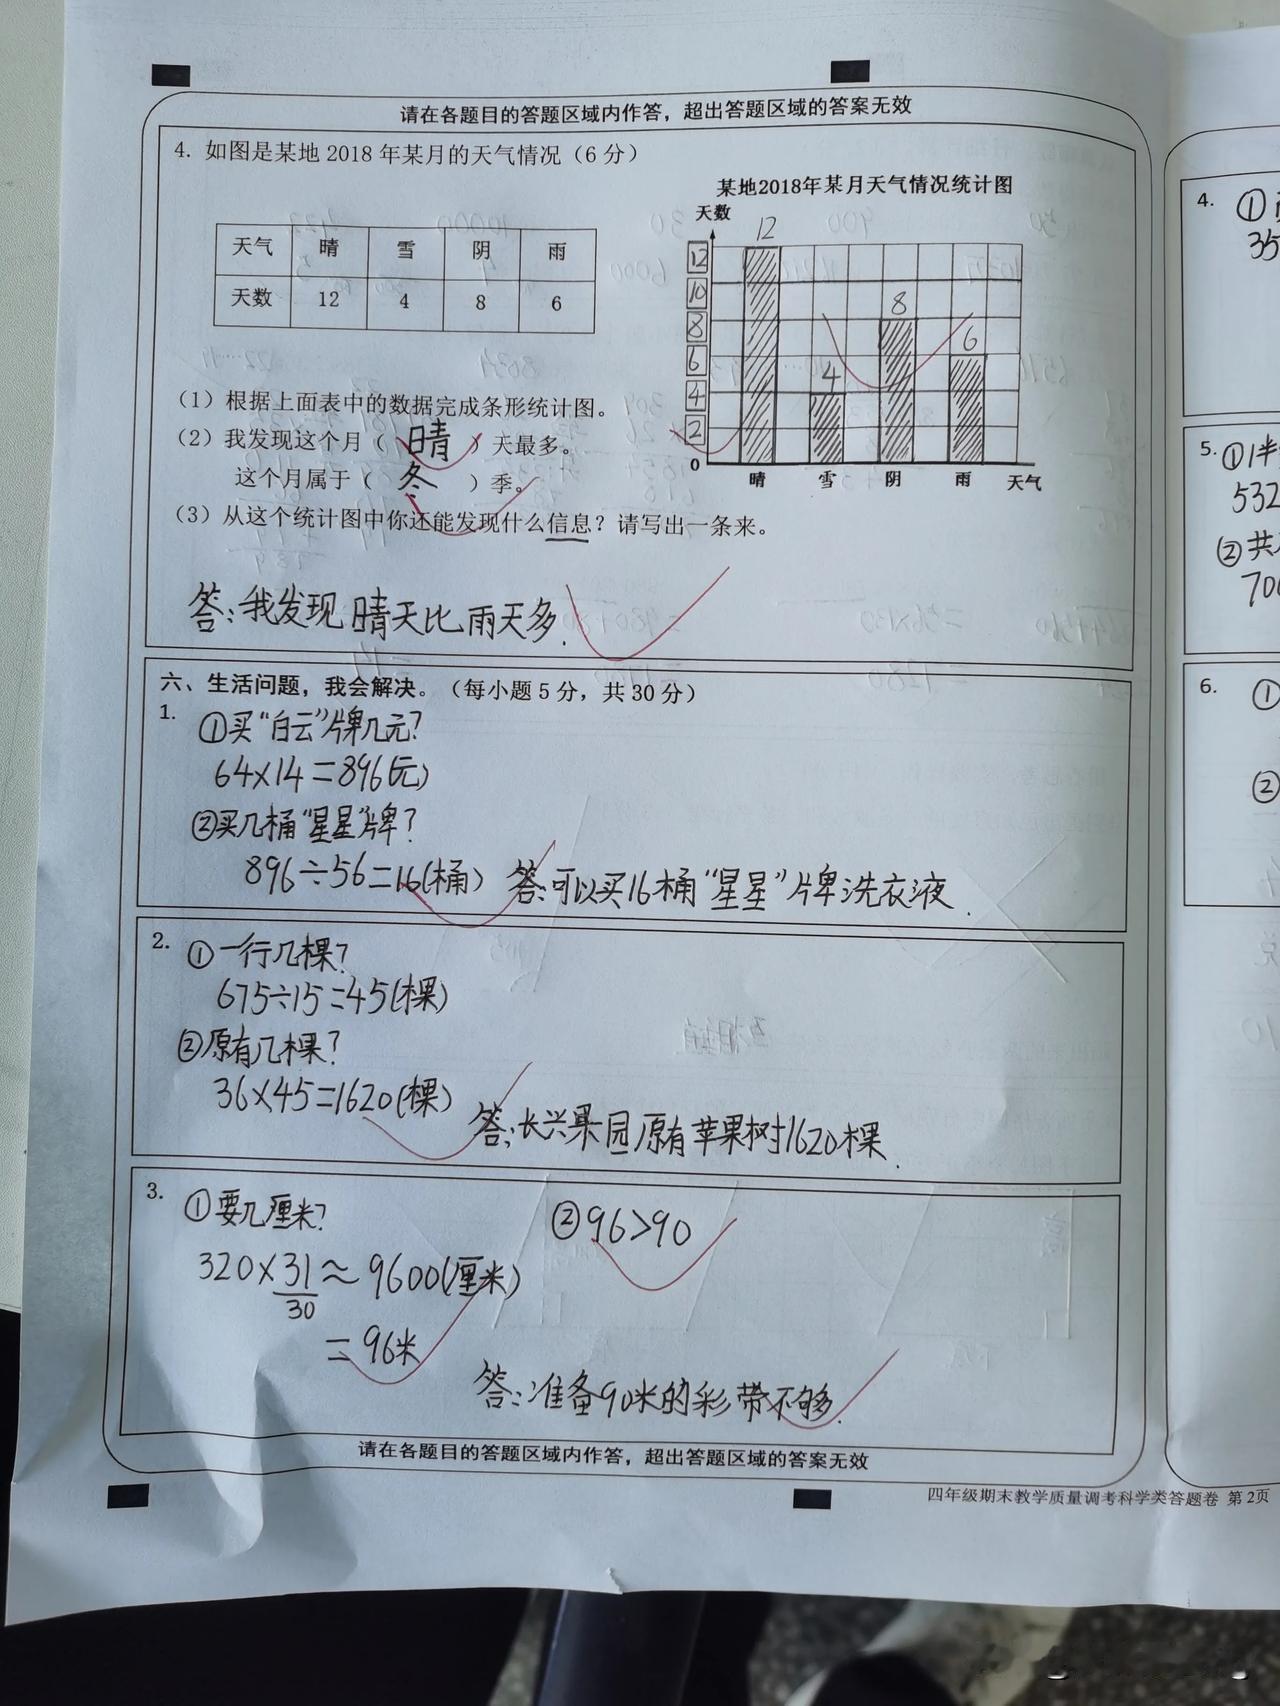 请在各题目的答题区域内作答，超出答题区域的答案无效
4. 如图是某地 2018 年某月的天气情况（6 分）
某地2018年某月天气情况统计图
天数
天气 晴 雪 阴 雨
天数 12 4 8 6
12
10
8
6
4
2
0
12
4
8
6
晴 雪 阴 雨 天气
（1）根据上面表中的数据完成条形统计图。
（2）我发现这个月（ 晴 ）天最多。
这个月属于（ 冬 ）季。
（3）从这个统计图中你还能发现什么信息？请写出一条来。
答：我发现晴天比雨天多.
六、生活问题，我会解决。（每小题 5 分，共 30 分）
1.
①买“白云”牌几元？
64×14＝896(元)
②买几桶“星星”牌？
896÷56＝16(桶) 答：可以买16桶“星星”牌洗衣液.
2.
①一行几棵？
675÷15＝45(棵)
②原有几棵？
36×45＝1620(棵)
答：长兴果园原有苹果树1620棵.
3.
①要几厘米？
320×31≈9600(厘米)
30
＝96米
②96>90
答：准备90米的彩带不够.
请在各题目的答题区域内作答，超出答题区域的答案无效
四年级期末教学质量调考科学类答题卷 第 2页
4.
①
35
5.
①1半
532
②共
700
6.
①
②